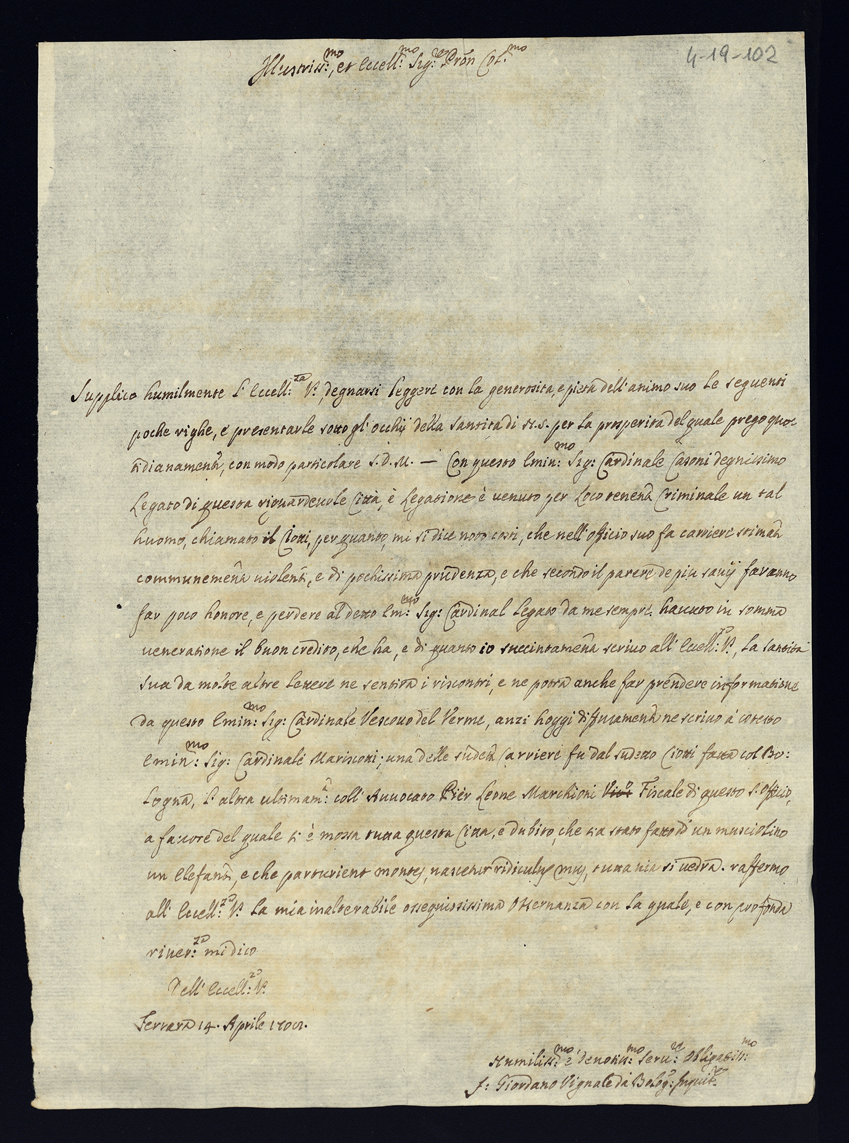 4-19-102
Illustriss:mo, et Eccell:mo Sig:re Pron Col:mo
Supplico humilmente l'Eccell:za V:, degnarsi leggere con la generosita, e pietà dell'animo suo le seguenti
poche righe, e presentarle sotto gl'occhij della Santità di N.S. per la prosperità del quale prego quo:
tidianamente, con modo particolare S.D.M. — Con questo Emin:mo Sig: Cardinale Casoni degnissimo
Legato di questa riguardevole Città, e Legatione è venuto per Locotenente Criminale un tal
huomo, chiamato il Cioni, per quanto, mi si dice noto costì, che nell'officio suo fa carriere stimate
communemente violenti, e di pochissima prudenza, e che secondo il parere de piu savij faranno
far poco honore, e perdere al detto Em:mo Sig: Cardinal Legato da me sempre havuto in somma
veneratione il buon credito, che ha, e di quanto io succintamente scrivo all'Eccell:za V:, la Santità
sua da molte altre lettere ne sentirà i riscontri, e ne potrà anche far prendere informatione
da questo Emin:mo Sig: Cardinale Vescovo del Verme, anzi hoggi diffusamente ne scrivo à cotesto
Emin:mo: Sig: Cardinale Mariscotti; una delle sudette Carriere fu dal sudetto Cioni fatta col Bo:
logna, l'altra ultimam:te coll'Avvocato Pier Leone Marchioni Fiscale di questo S. Officio,
a favore del quale si è mossa tutta questa Città, e dubito, che sia stato fatto di un musciolino
un Elefante, e che parturient montes, nascetur ridiculus mus, tuttavia si vedrà. raffermo
all'Eccell:za V: la mia inalterabile ossequiosissima osservanza con la quale, e con profonda
river:za mi dico
Dell'Eccell:za V:
Ferrara 14. Aprile
Humiliss:mo è Devotiss:mo Serv:re Obligatiss:mo
f: Giordano Vignale da Bolog: Inquis:re